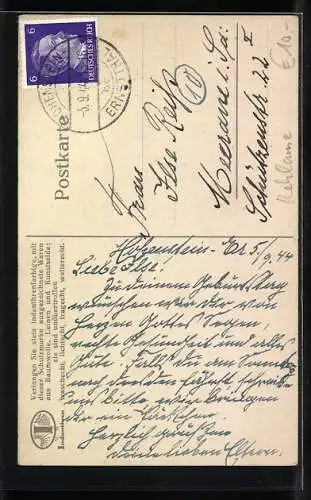 6 6
DEUTSCHES REICH
HOHENSTEIN-ERNSTTH
-5.9.4
Postkarte
Frau
Ilse Reiß
Meerane i. Sa.
Schützenstr. 22 I
10
Reklame
E10.-
Verlangen Sie stets indanthrenfarbige, mit
dieser Schutzmarke ausgezeichnete Waren
aus Baumwolle, Leinen und Kunstseide;
sie sind unübertroffen
waschecht, lichtecht, tragecht, wetterecht.
Indanthren
Hohenstein-Er 5./9.44
Liebe Ilse!
Zu deinem Geburtstag
wünschen wir dir von
Herzen Gottes Segen,
rechte Gesundheit und alles
Gute. Falls du am Sonntag
nach fährst schreibe
uns bitte, wir bringen
dir ein
Herzlich grüßen
deine lieben Eltern.